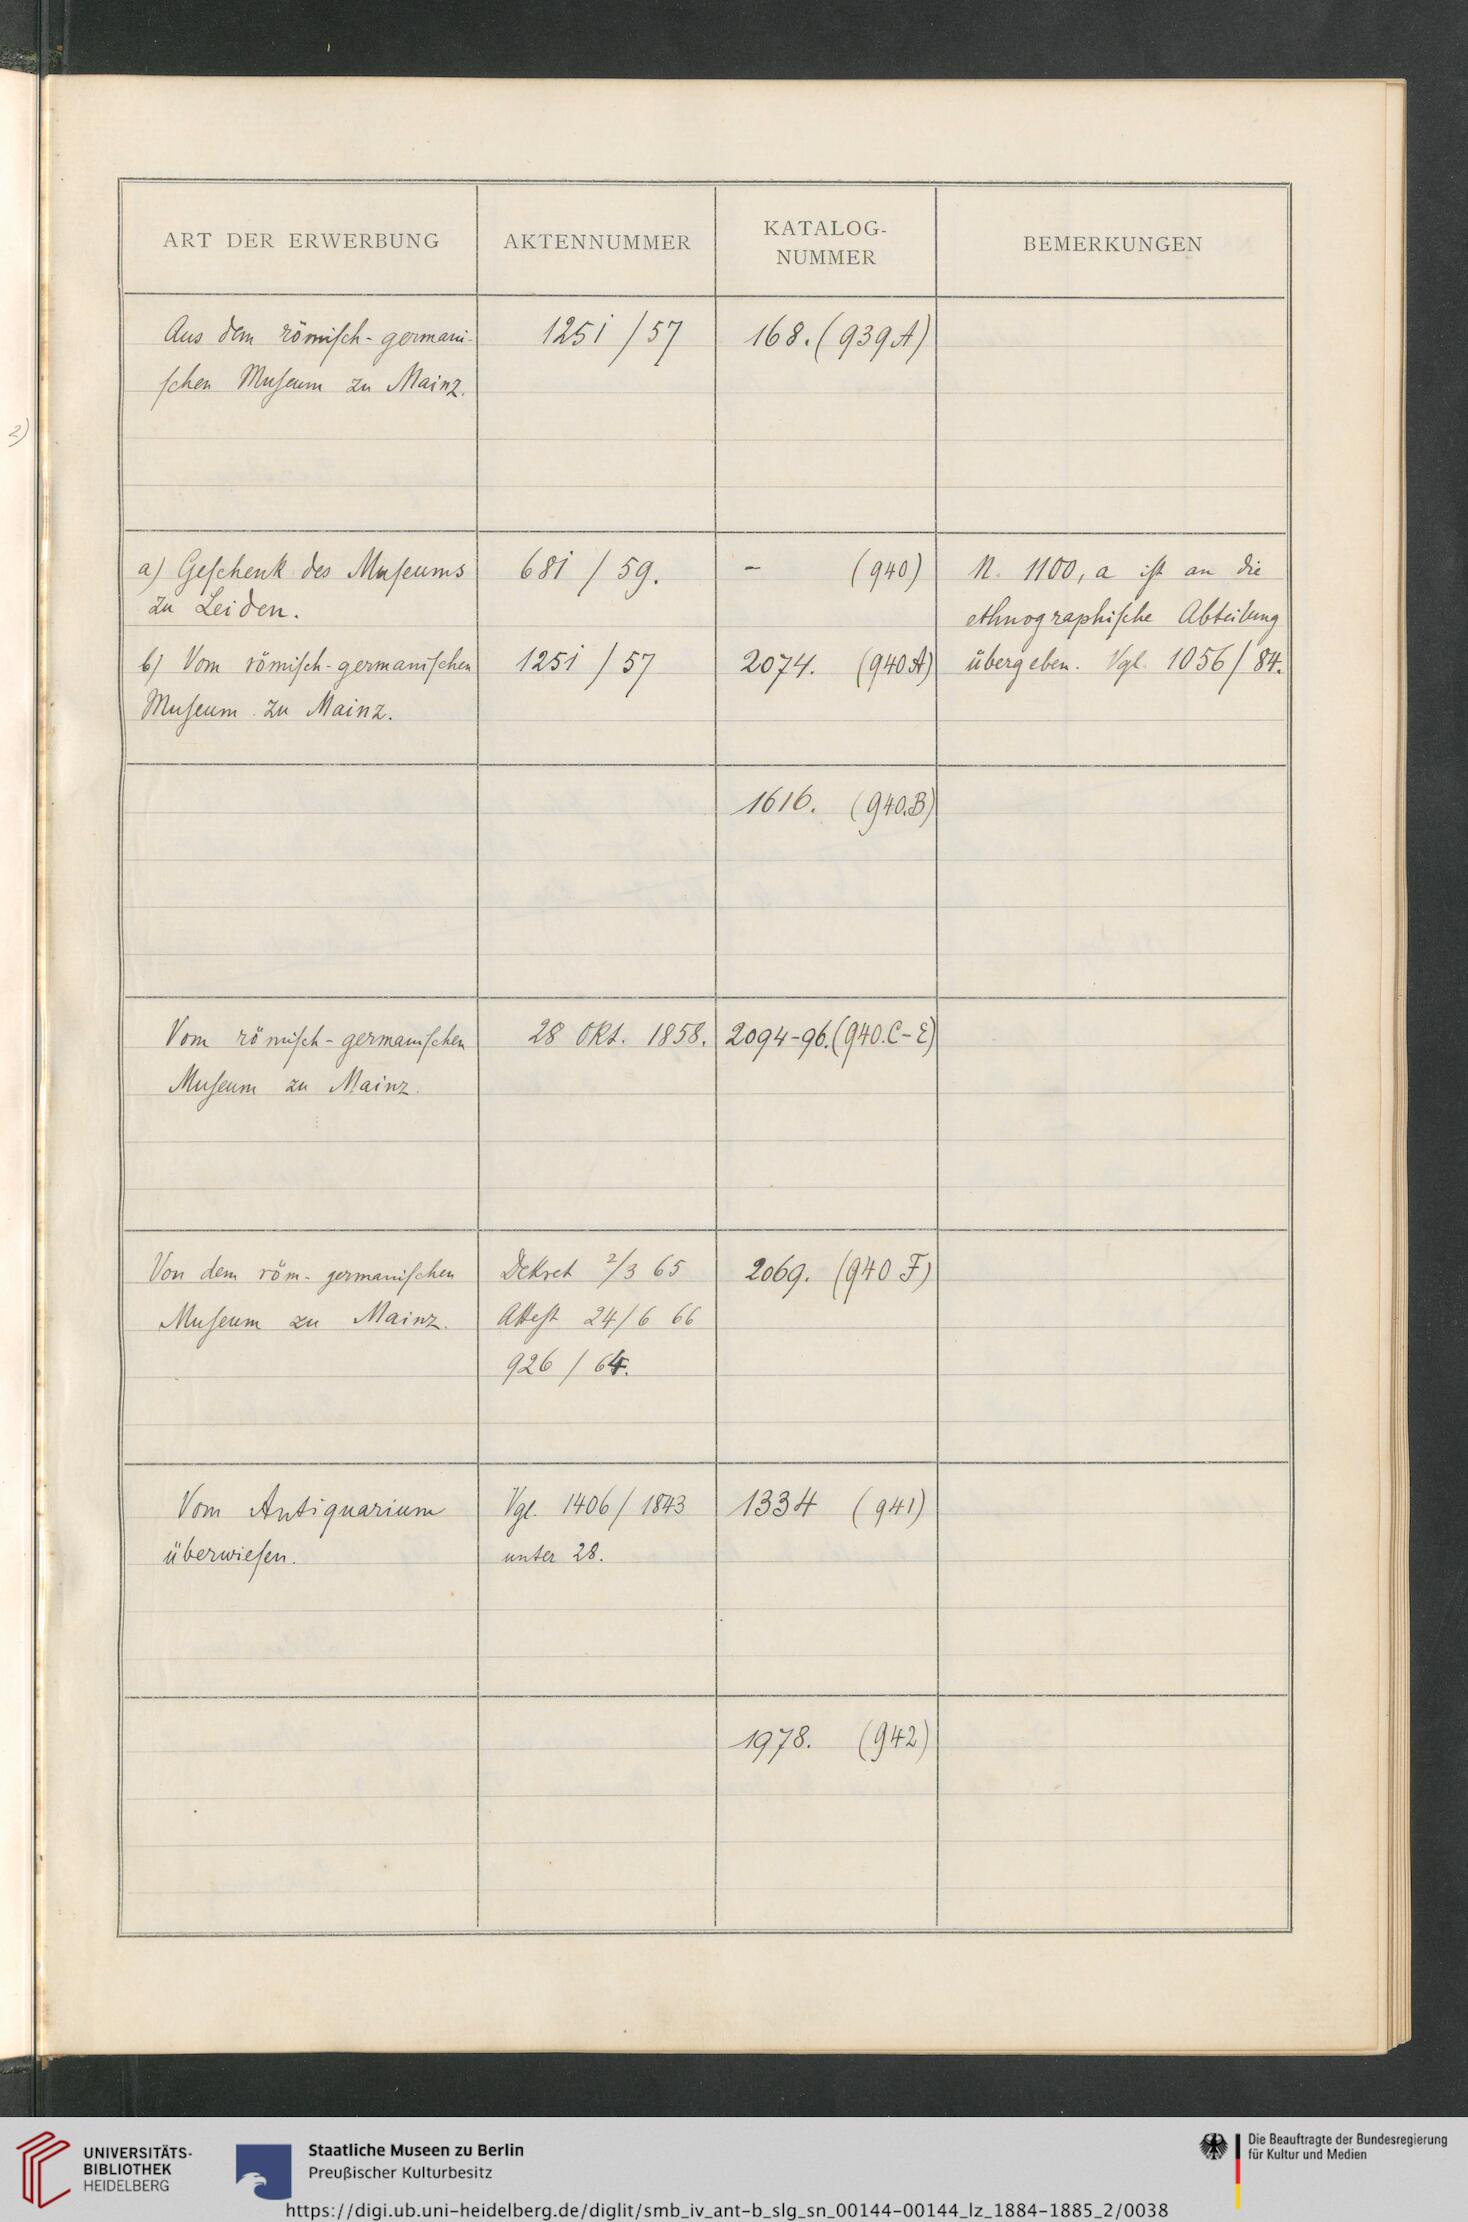 ART DER ERWERBUNG
AKTENNUMMER
KATALOG-
NUMMER
BEMERKUNGEN
Aus dem römisch-germani-
schen Museum zu Mainz.
1251 / 57
168. (939 A)
2)
a) Geschenk des Museums
zu Leiden.
681 / 59.
- (940)
N. 1100, a ist an die
ethnographische Abteilung
übergeben. Vgl. 1056 / 84.
b) Vom römisch-germanischen
Museum zu Mainz.
1251 / 57
2074. (940 A)
1616. (940.B)
Vom römisch-germanischen
Museum zu Mainz.
28 Okt. 1858.
2094-96. (940.C-E)
Von dem röm.-germanischen
Museum zu Mainz.
Dekret 2/3 65
Attest 24/6 66
926 / 64.
2069. (940 F)
Vom Antiquarium
überwiesen.
Vgl. 1406 / 1843
unter 28.
1334 (941)
1978. (942)
UNIVERSITÄTS-
BIBLIOTHEK
HEIDELBERG
Staatliche Museen zu Berlin
Preußischer Kulturbesitz
Die Beauftragte der Bundesregierung
für Kultur und Medien
https://digi.ub.uni-heidelberg.de/diglit/smb_iv_ant-b_slg_sn_00144-00144_lz_1884-1885_2/0038